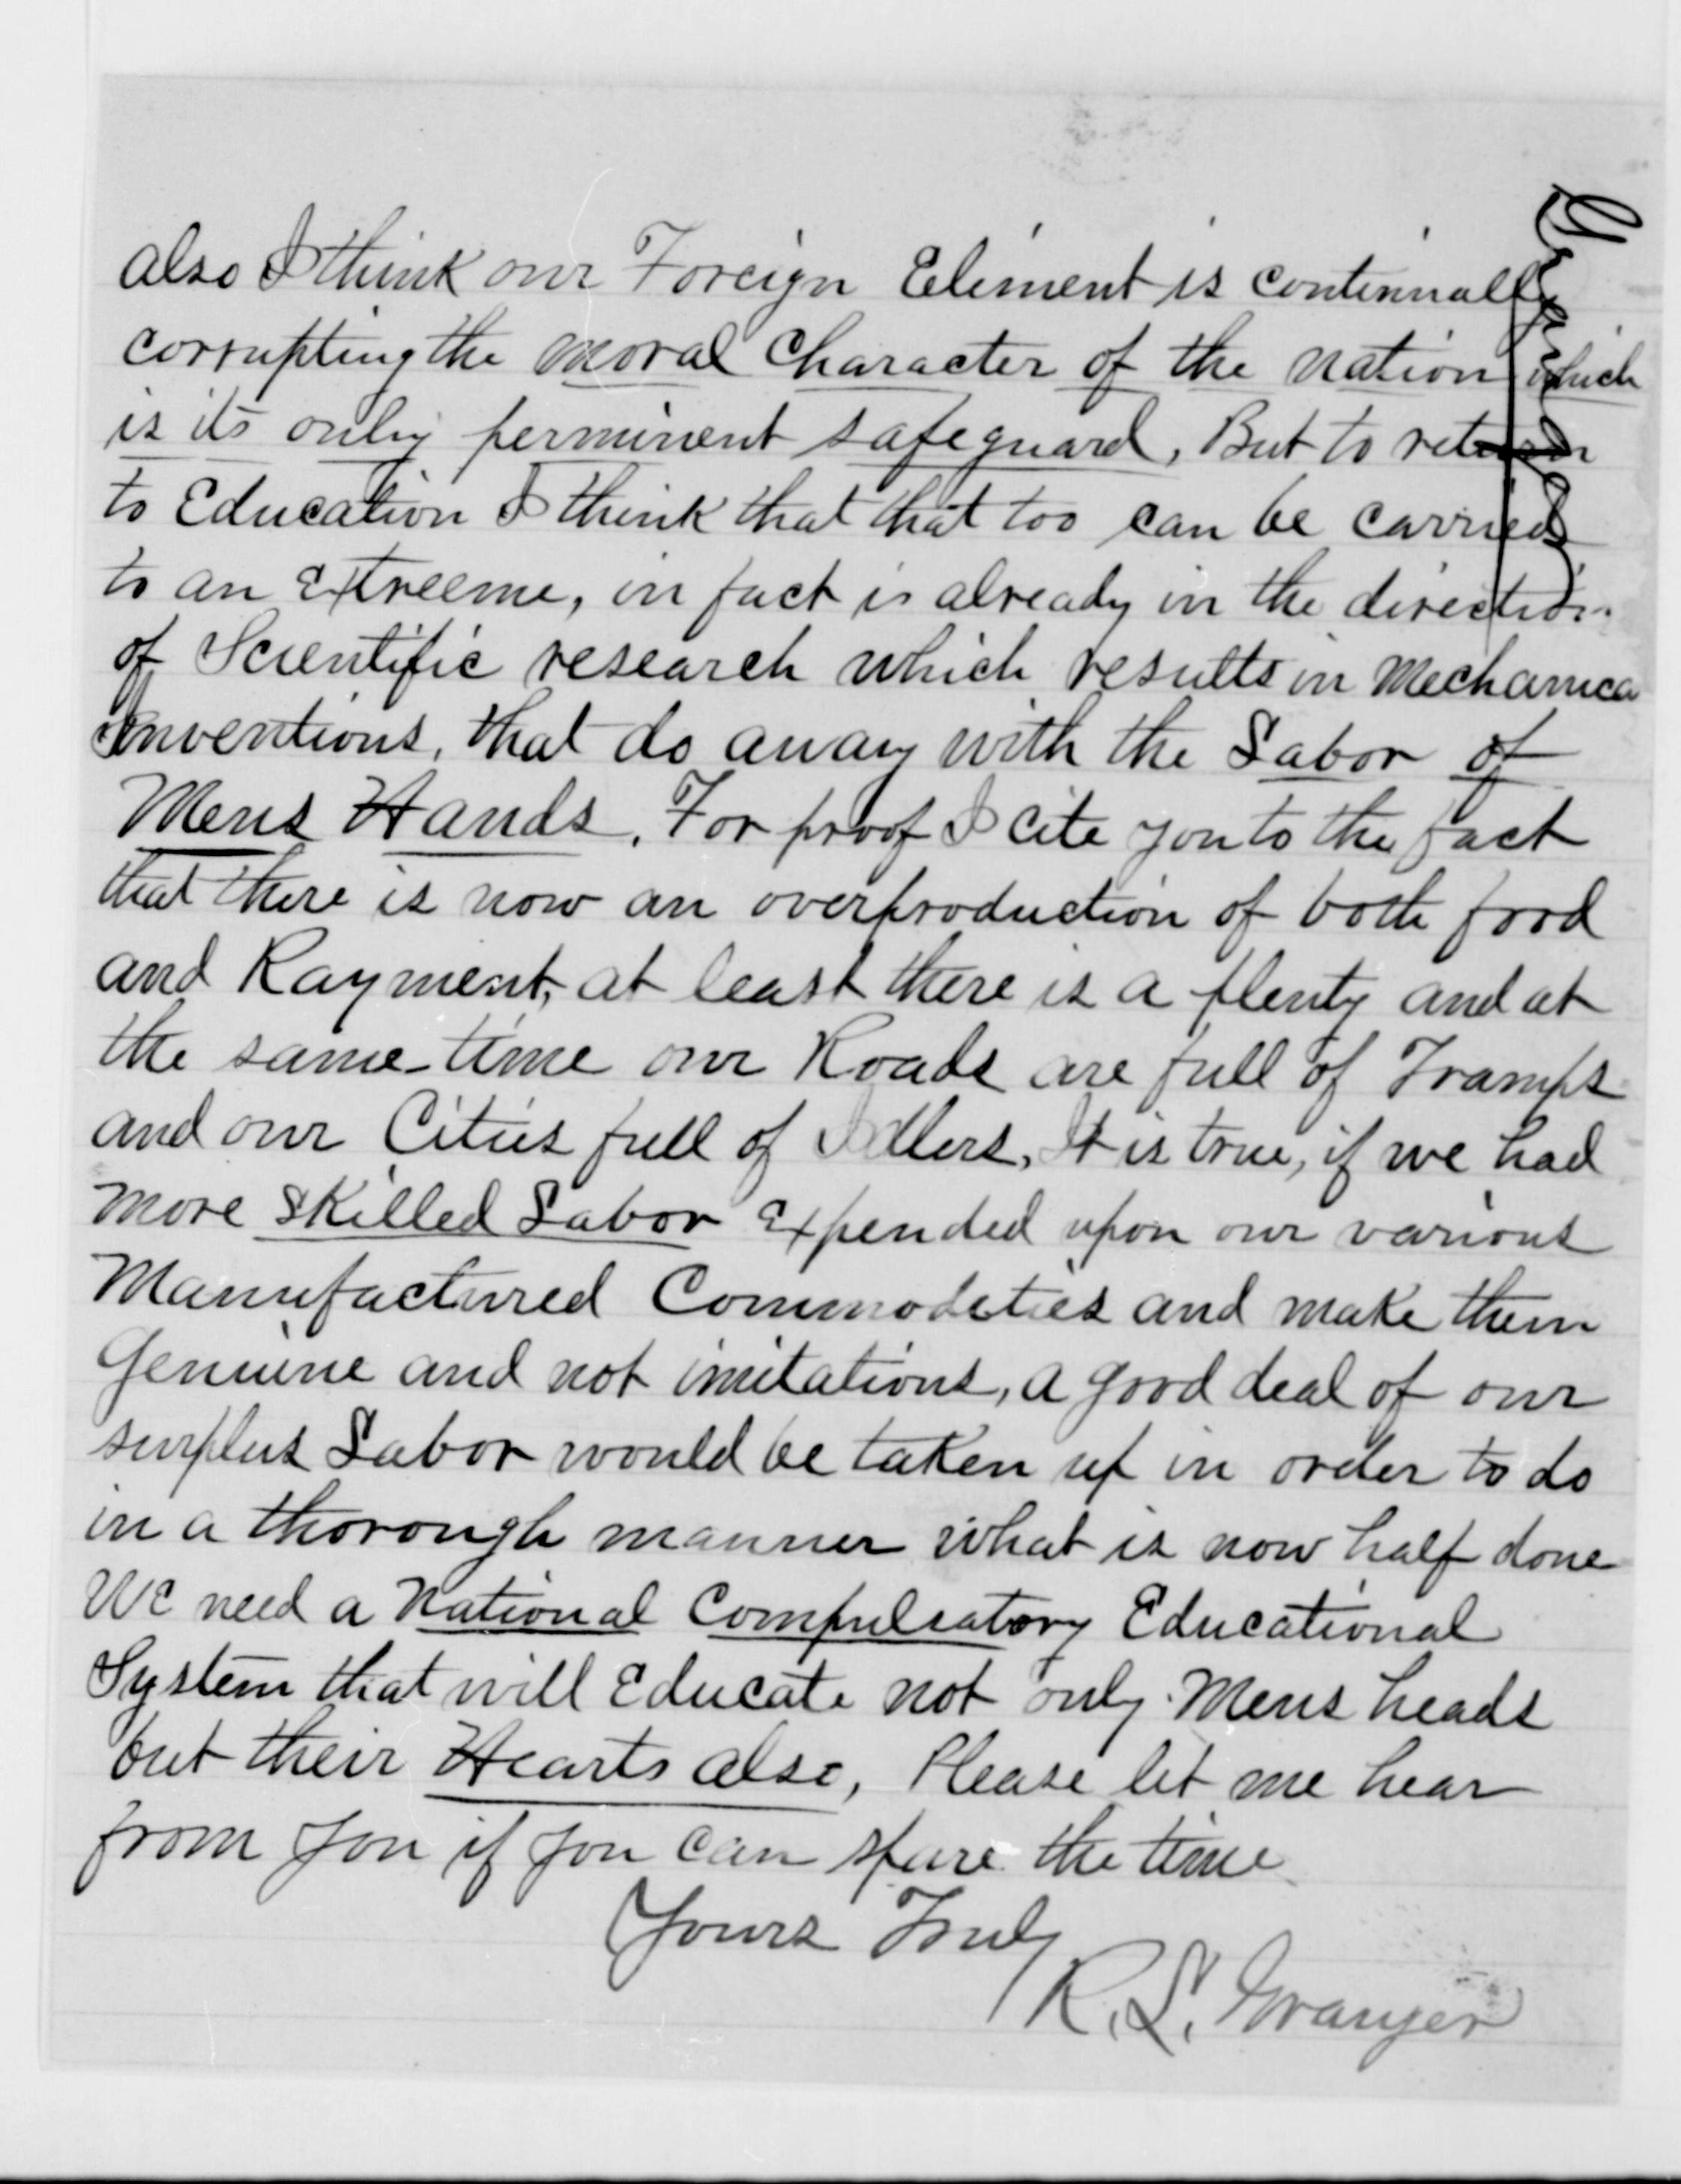 also I think our Foreign Element is continually
corrupting the moral Character of the nation which
is its only perminent safeguard, But to return
to Education I think that that too can be carried
to an Extreeme, in fact is already in the direction
of Scientific research which results in Mechanica
Inventions, that do away with the Labor of
Mens Hands. For proof I cite you to the fact
that there is now an overproduction of both food
and Rayment, at least there is a plenty and at
the same time our Roads are full of Tramps
and our Cities full of Idlers, It is true, if we had
more skilled Labor Expended upon our various
Manufactured Commodities and make them
Genuine and not imitations, a good deal of our
surplus Labor would be taken up in order to do
in a thorough manner what is now half done
We need a National Compulsatory Educational
System that will Educate not only Mens heads
but their Hearts also, Please let me hear
from you if you can spare the time
Yours Truly
R. L. Granger